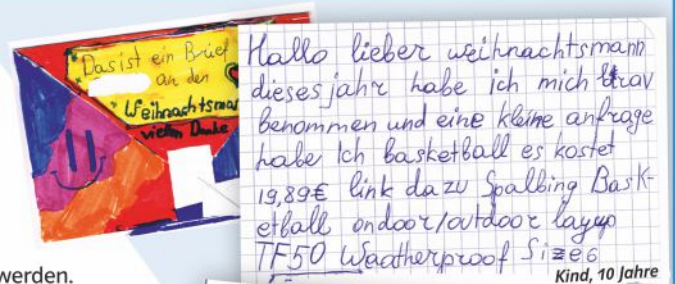 Das ist ein Brief
an den
Weihnachtsma
vielen Danke
Hallo lieber weihnachtsmann
dieses jahr habe ich mich brav
benommen und eine kleine anfrage
habe Ich basketball es kostet
19,89€ link dazu Spalbing Bask-
etball ondoor/outdoor layup
TF50 Waatherproof Size6
Kind, 10 Jahre
werden.